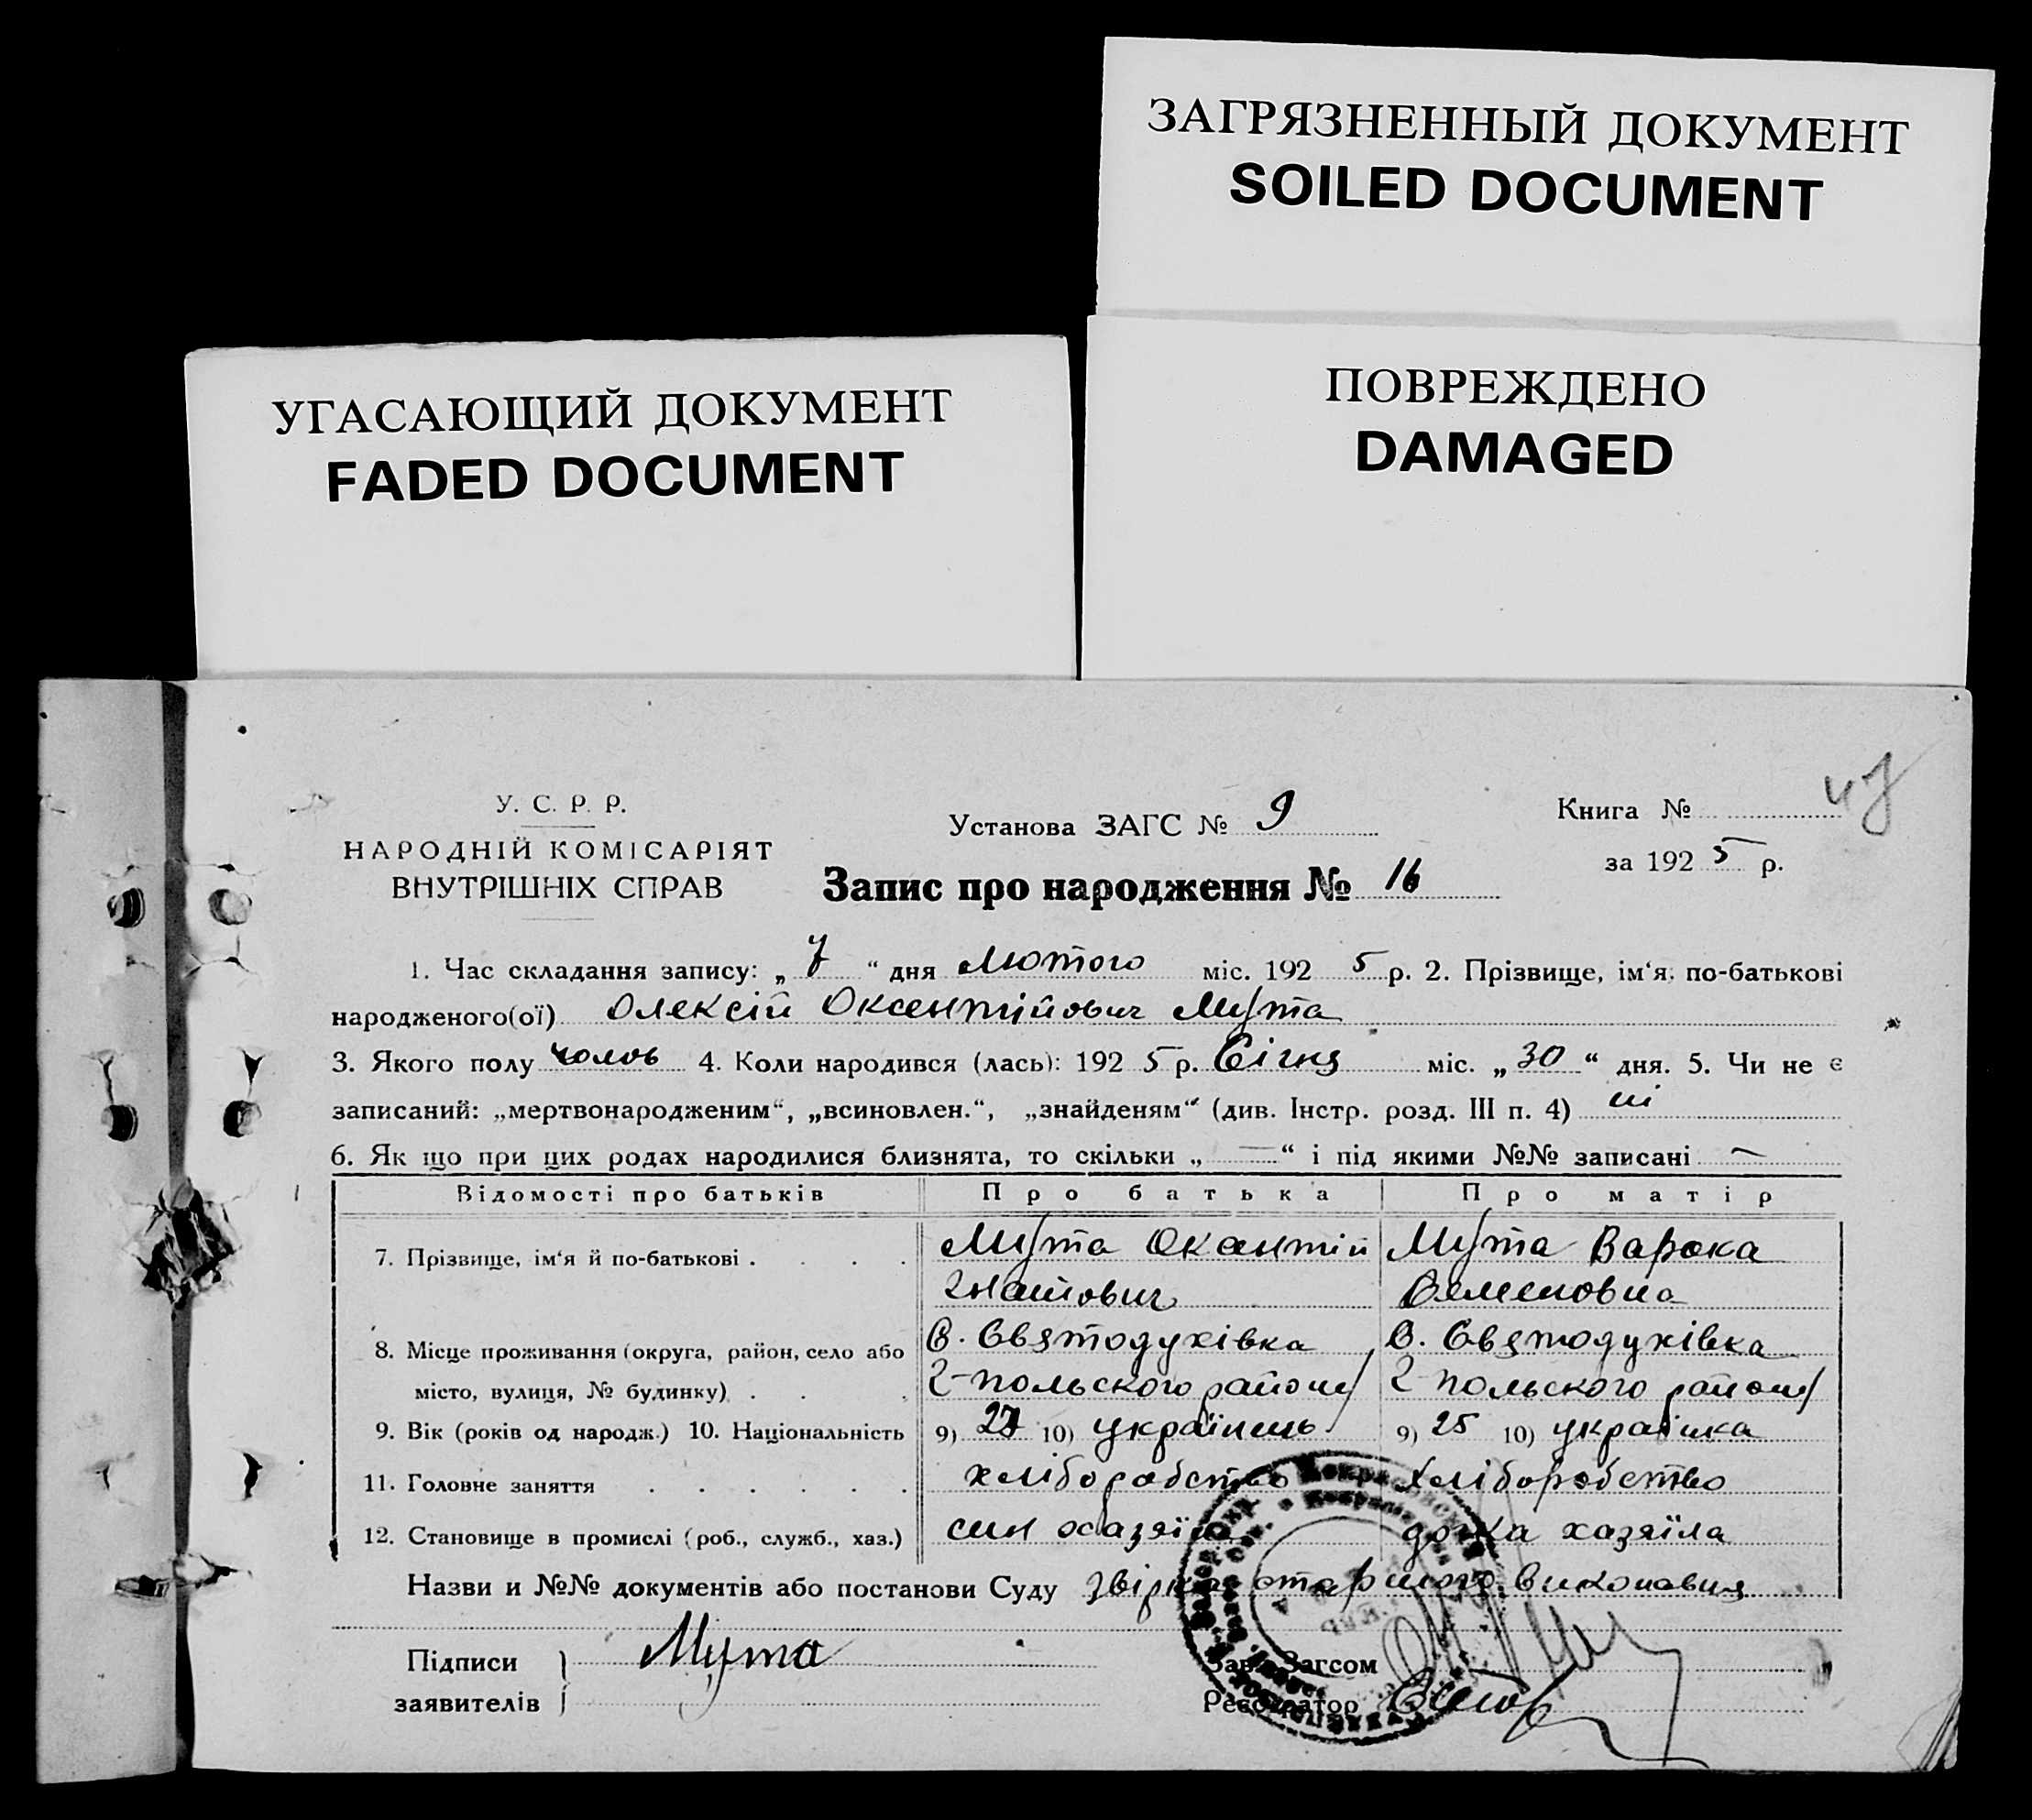 ЗАГРЯЗНЕННЫЙ ДОКУМЕНТ
SOILED DOCUMENT
УГАСАЮЩИЙ ДОКУМЕНТ
FADED DOCUMENT
ПОВРЕЖДЕНО
DAMAGED
47
У. С. Р. Р.
НАРОДНІЙ КОМІСАРІЯТ
ВНУТРІШНІХ СПРАВ
Установа ЗАГС № 9
Запис про народження № 16
Книга №
за 1925 р.
1. Час складання запису: „ 7 “ дня Лютого міс. 192 5 р. 2. Прізвище, ім‘я, по-батькові
народженого(ої) Олексій Оксентійович Мута
3. Якого полу чолов 4. Коли народився (лась): 192 5 р. Січня міс. „ 30 “ дня. 5. Чи не є
записаний: „мертвонародженим“, „всиновлен.“, „знайденям“ (див. Інстр. розд. III п. 4) ні
6. Як що при цих родах народилися близнята, то скільки „ — “ і під якими №№ записані —
Відомості про батьків Про батька Про матір
7. Прізвище, ім‘я й по-батькові . . . . Мута Оксентій Мута Варка
Гнатович Семеновна
8. Місце проживання (округа, район, село або С. Святодухівка С. Святодухівка
місто, вулиця, № будинку) . . . Г-польского району Г-польского району
9. Вік (років од народж.) 10. Національність 9) 27 10) українець 9) 25 10) українка
11. Головне заняття . . . . . . хліборобство хліборобство
12. Становище в промислі (роб., служб., хаз.) син хазяїна дочка хазяїна
Назви и №№ документів або постанови Суду Звірка старшого виконавця
Підписи
заявителів
Мута
Зав. Загсом
Реєстратор